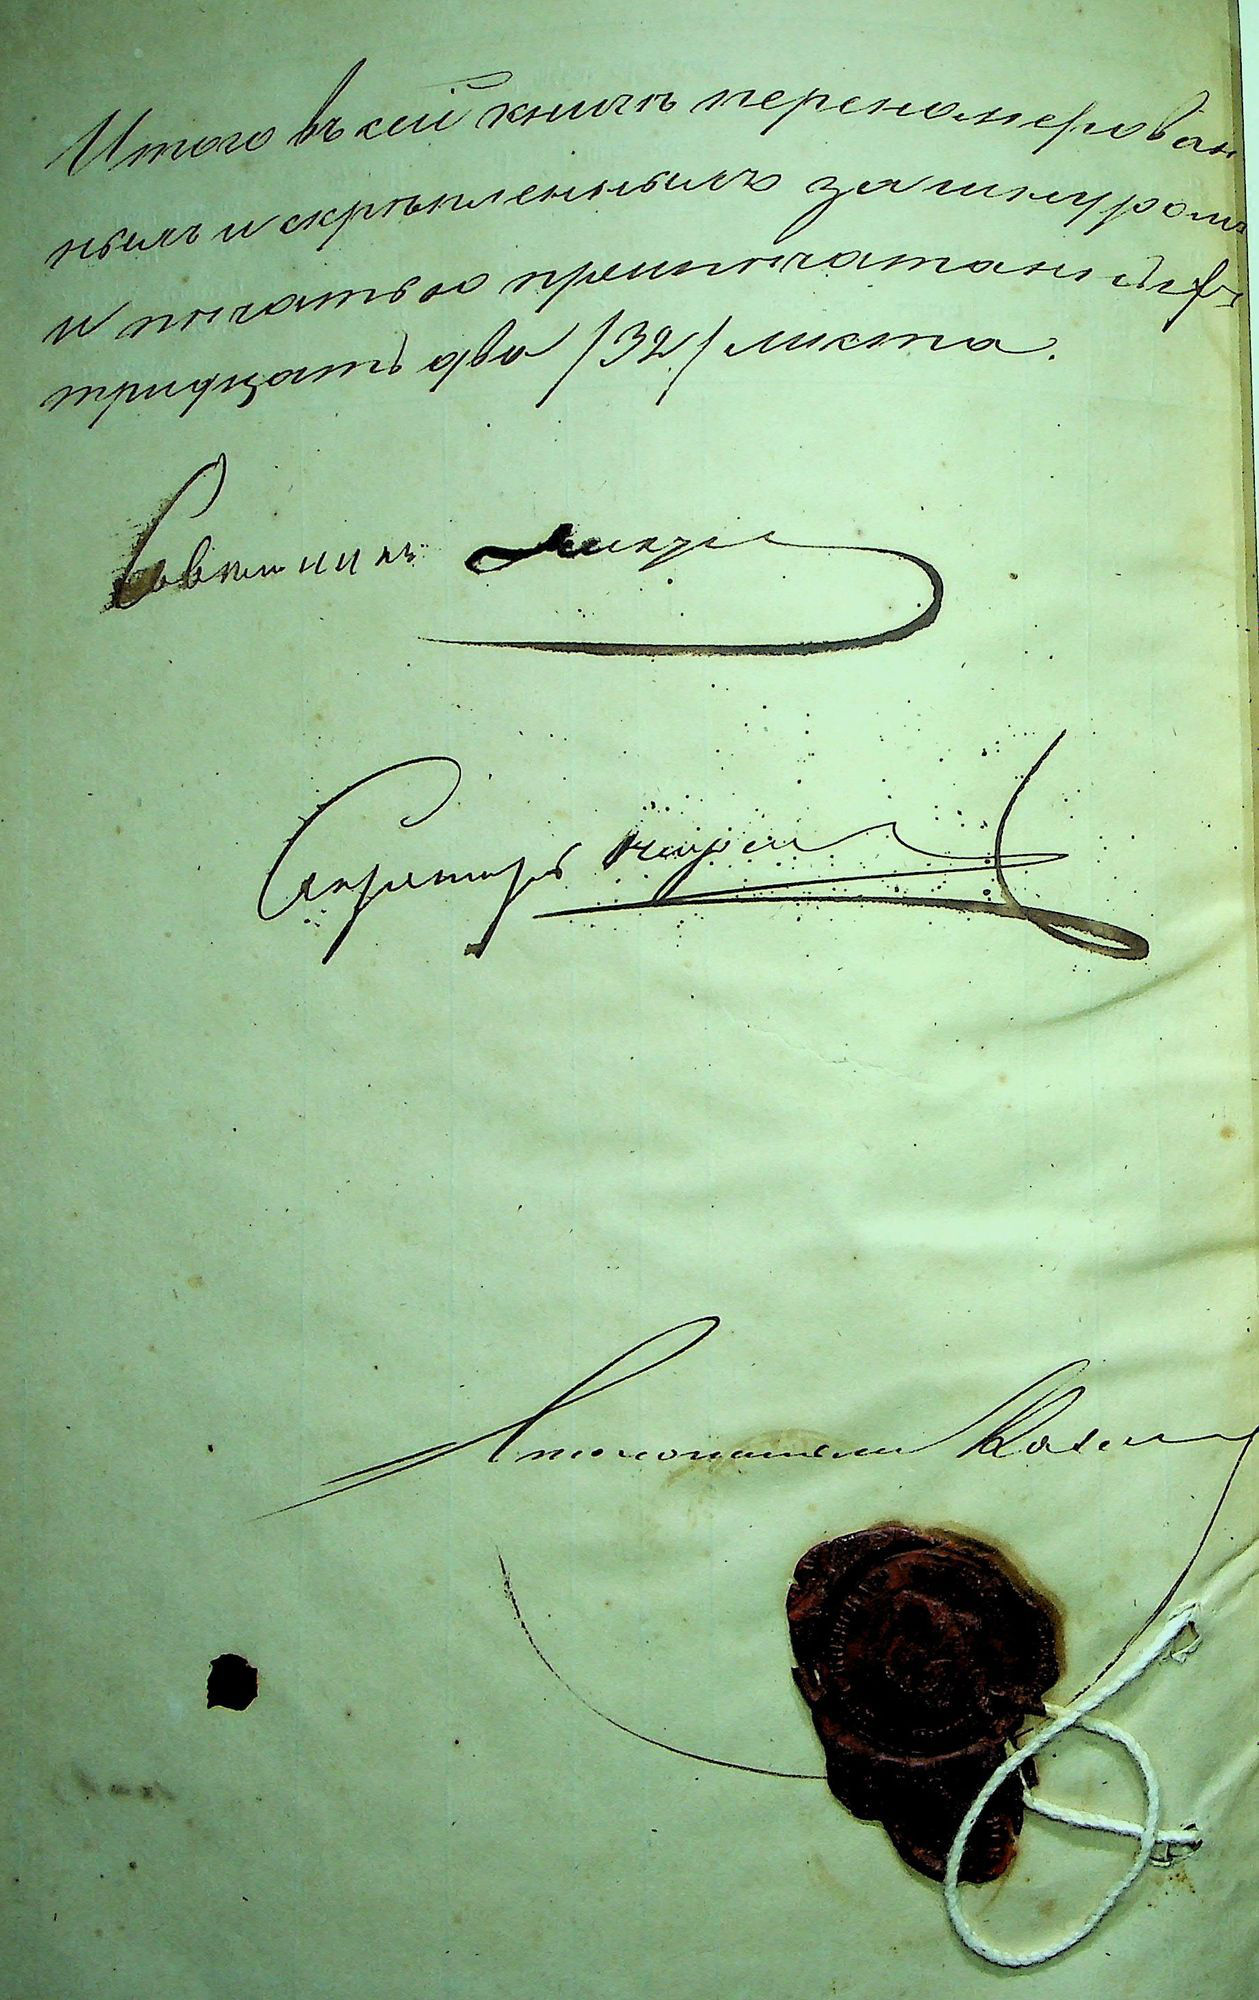 Итого въ сей книгѣ переномерован
ныхъ и скрѣпленныхъ за шнуромъ
и печатью припечатанныхъ
тридцать два /32/ листа.
Совѣтникъ
Секретарь
Столоначальникъ